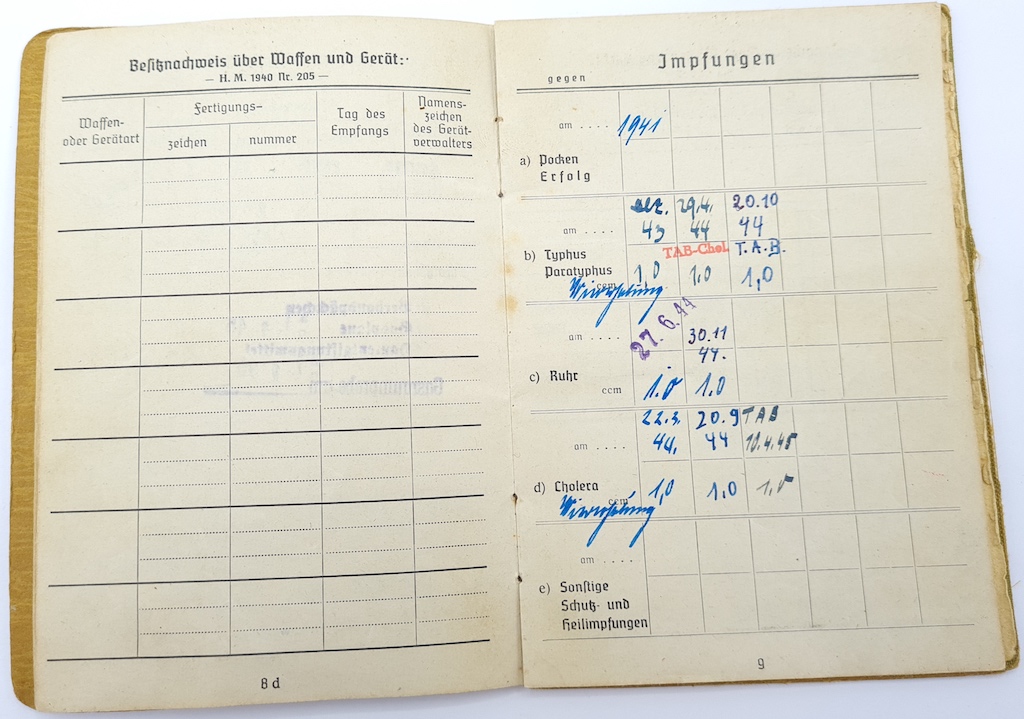 Besitznachweis über Waffen und Gerät:
— H. M. 1940 Nr. 205 —
Waffen-
oder Gerätart
Fertigungs-
zeichen
nummer
Tag des
Empfangs
Namens-
zeichen
des Gerät-
verwalters
8 d
Impfungen
gegen
am .... 1941
a) Pocken
Erfolg
29.4. 20.10
am .... 43 44 44
b) Typhus TAB-Chol. T.A.B.
Paratyphus 1,0 1,0 1,0
ccm
am .... 27.6.44 30.11
44.
c) Ruhr
ccm 1.0 1.0
22.3. 20.9 TAB
am .... 44. 44 10.4.45
d) Cholera
ccm 1,0 1.0 1.0
am ....
e) Sonstige
Schutz- und
Heilimpfungen
9